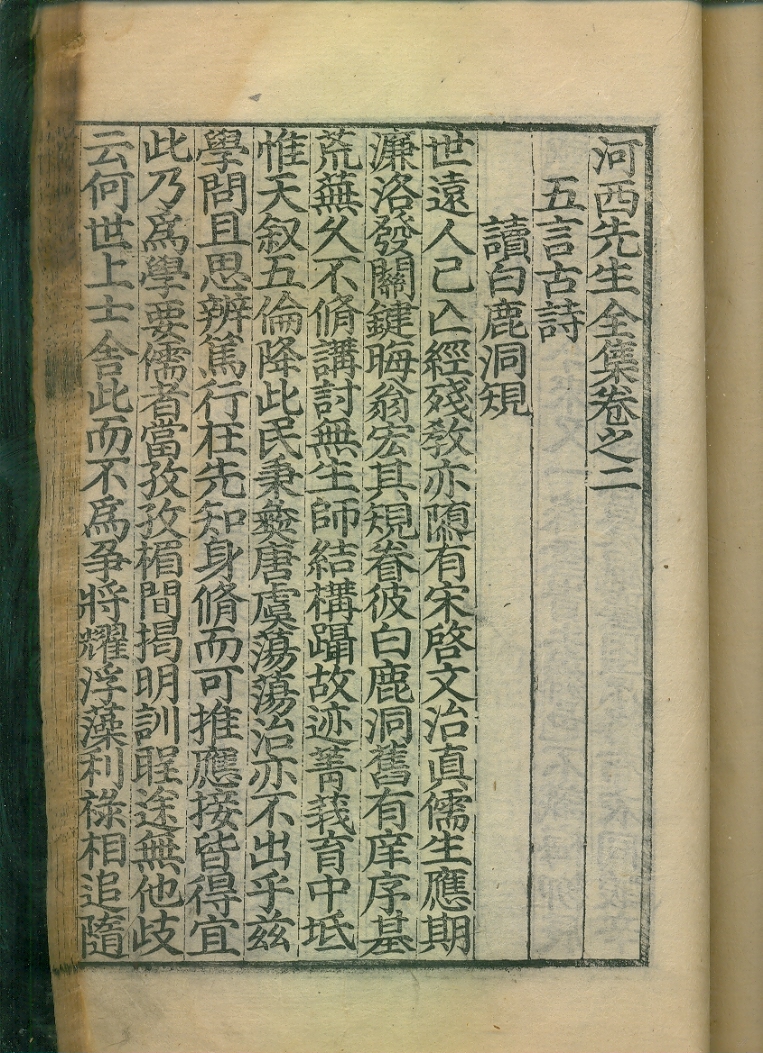 河西先生全集卷之二
五言古詩
讀白鹿洞規
世遠人已亾經殘敎亦隱有宋啓文治真儒生應期
濂洛發關鍵晦翁宏其規眷彼白鹿洞舊有庠序基
荒蕪久不脩講討無生師結構躡故迹菁莪育中坻
惟天叙五倫降此民秉彜唐虞蕩蕩治亦不出乎兹
學問且思辨篤行在先知身脩而可推應接皆得宜
此乃爲學要儒者當孜孜楣間揭明訓聖途無他歧
云何世上士舍此而不爲争將耀浮藻利祿相追隨